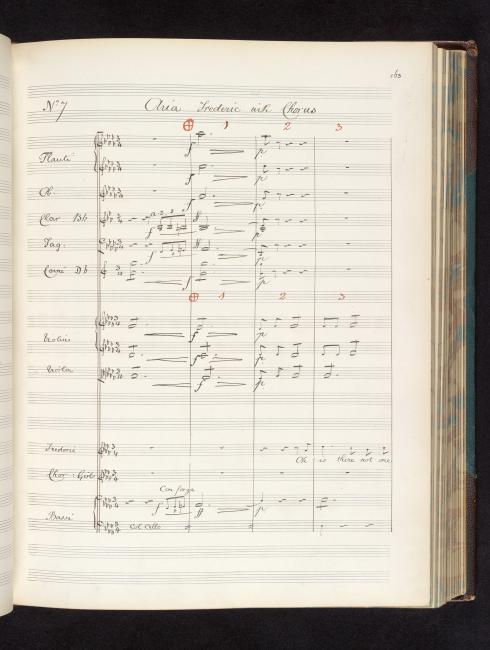 163
No 7 Aria Frederic with Chorus
⊕ 1 2 3
Flauti
f p
f p
Ob.
f p
Clar Bb
a 2. f ff p
Fag.
f ff p
Corni Db
f p
⊕ 1 2 3
f p
Violini
f p
Viola
f p
Frederic
Oh is there not one
Chor: Girls
Con forza
f ff p
Bassi
Col Cello